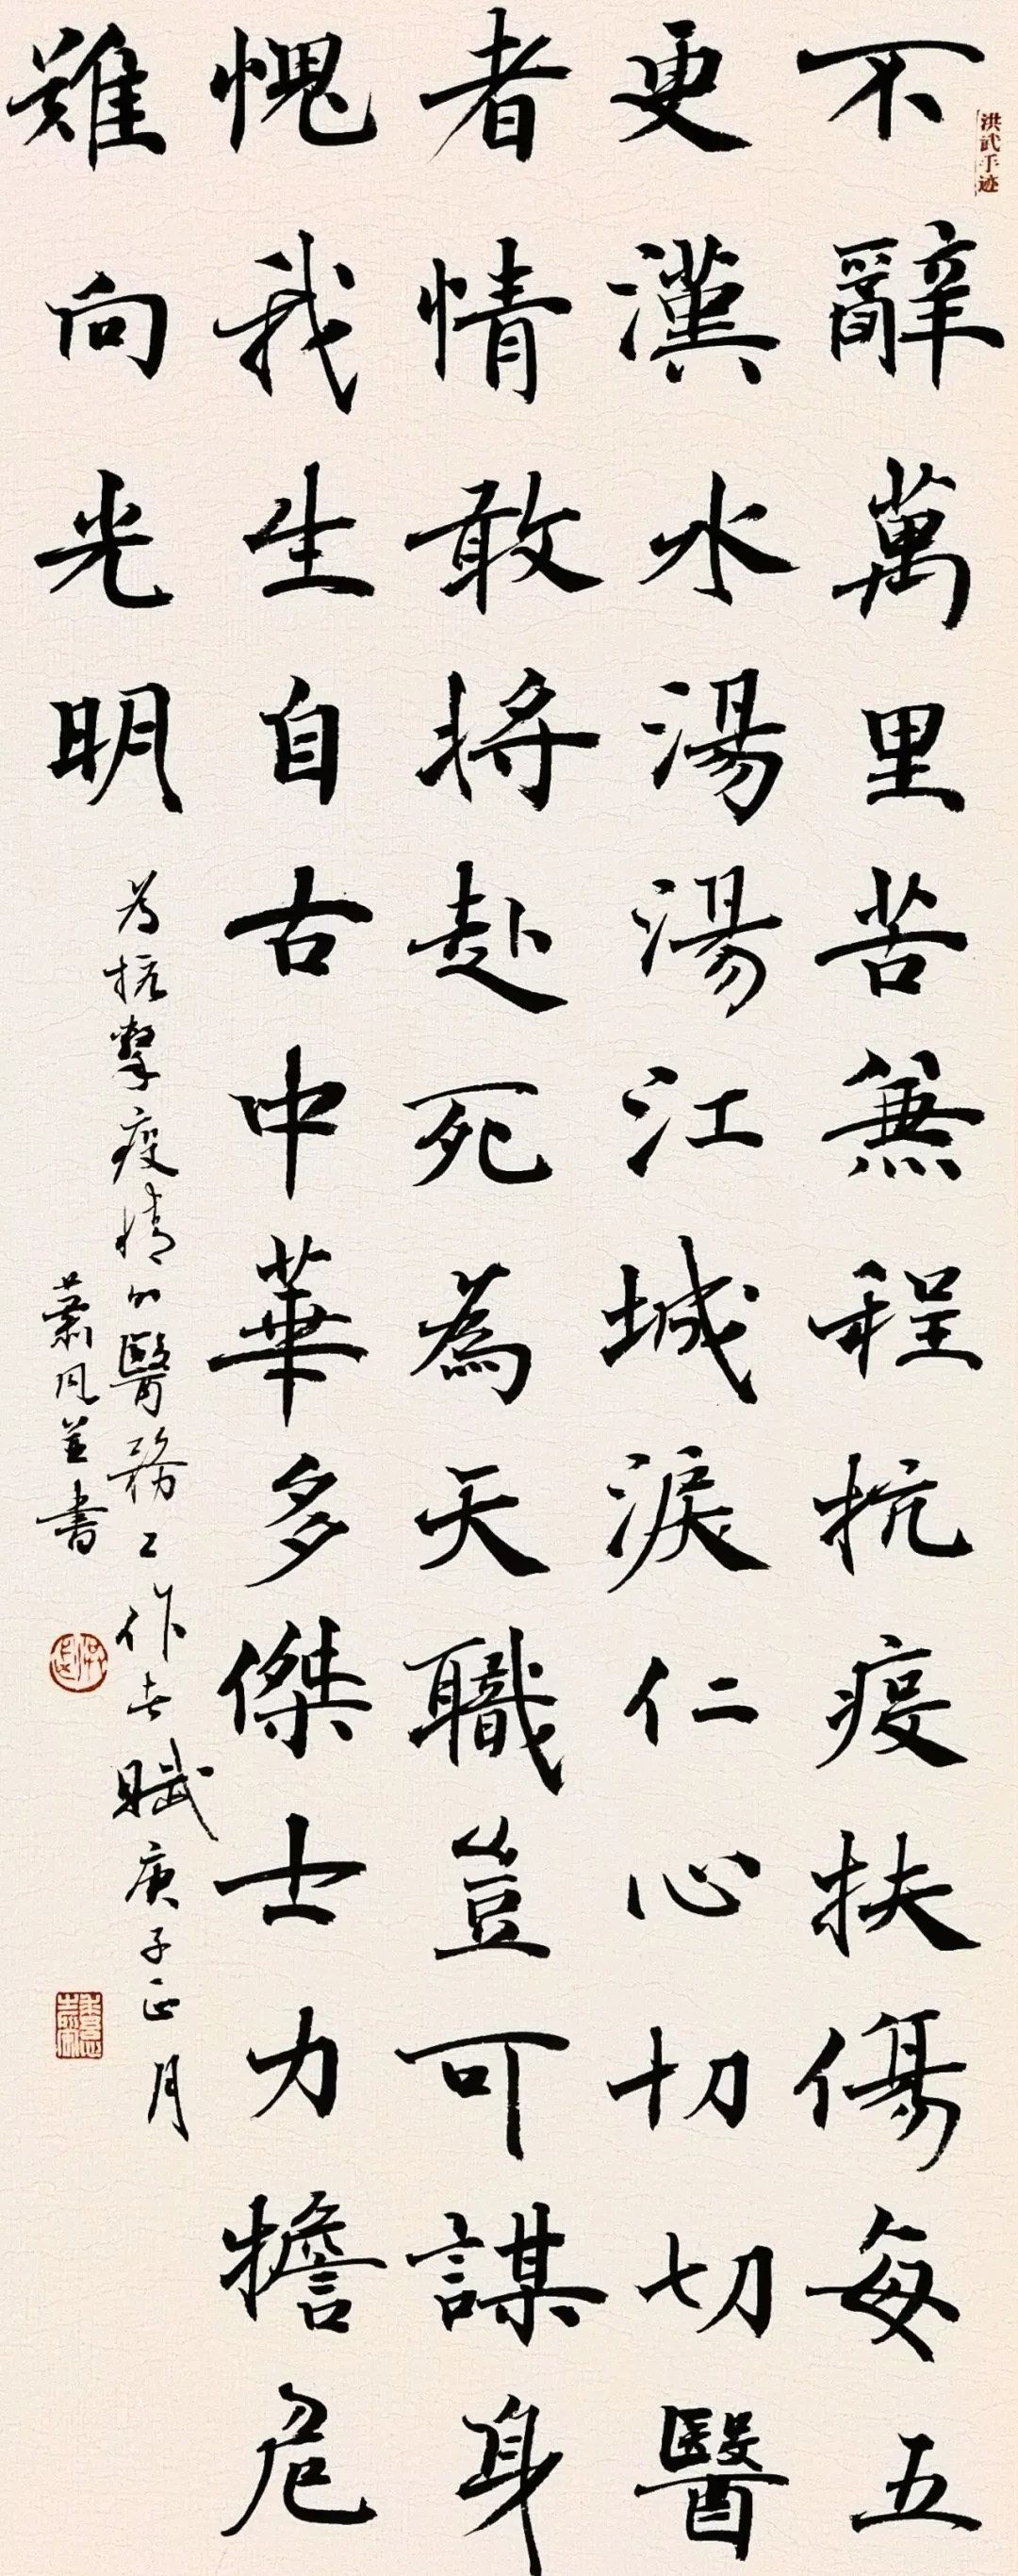 洪武手迹
不辭萬里苦兼程抗疫扶傷每五
更漢水湯湯江城淚仁心切切醫
者情敢將赴死為天職豈可謀身
愧我生自古中華多傑士力擔危
難向光明
为抗擊疫情的醫務工作者賦庚子正月
蕭風並書